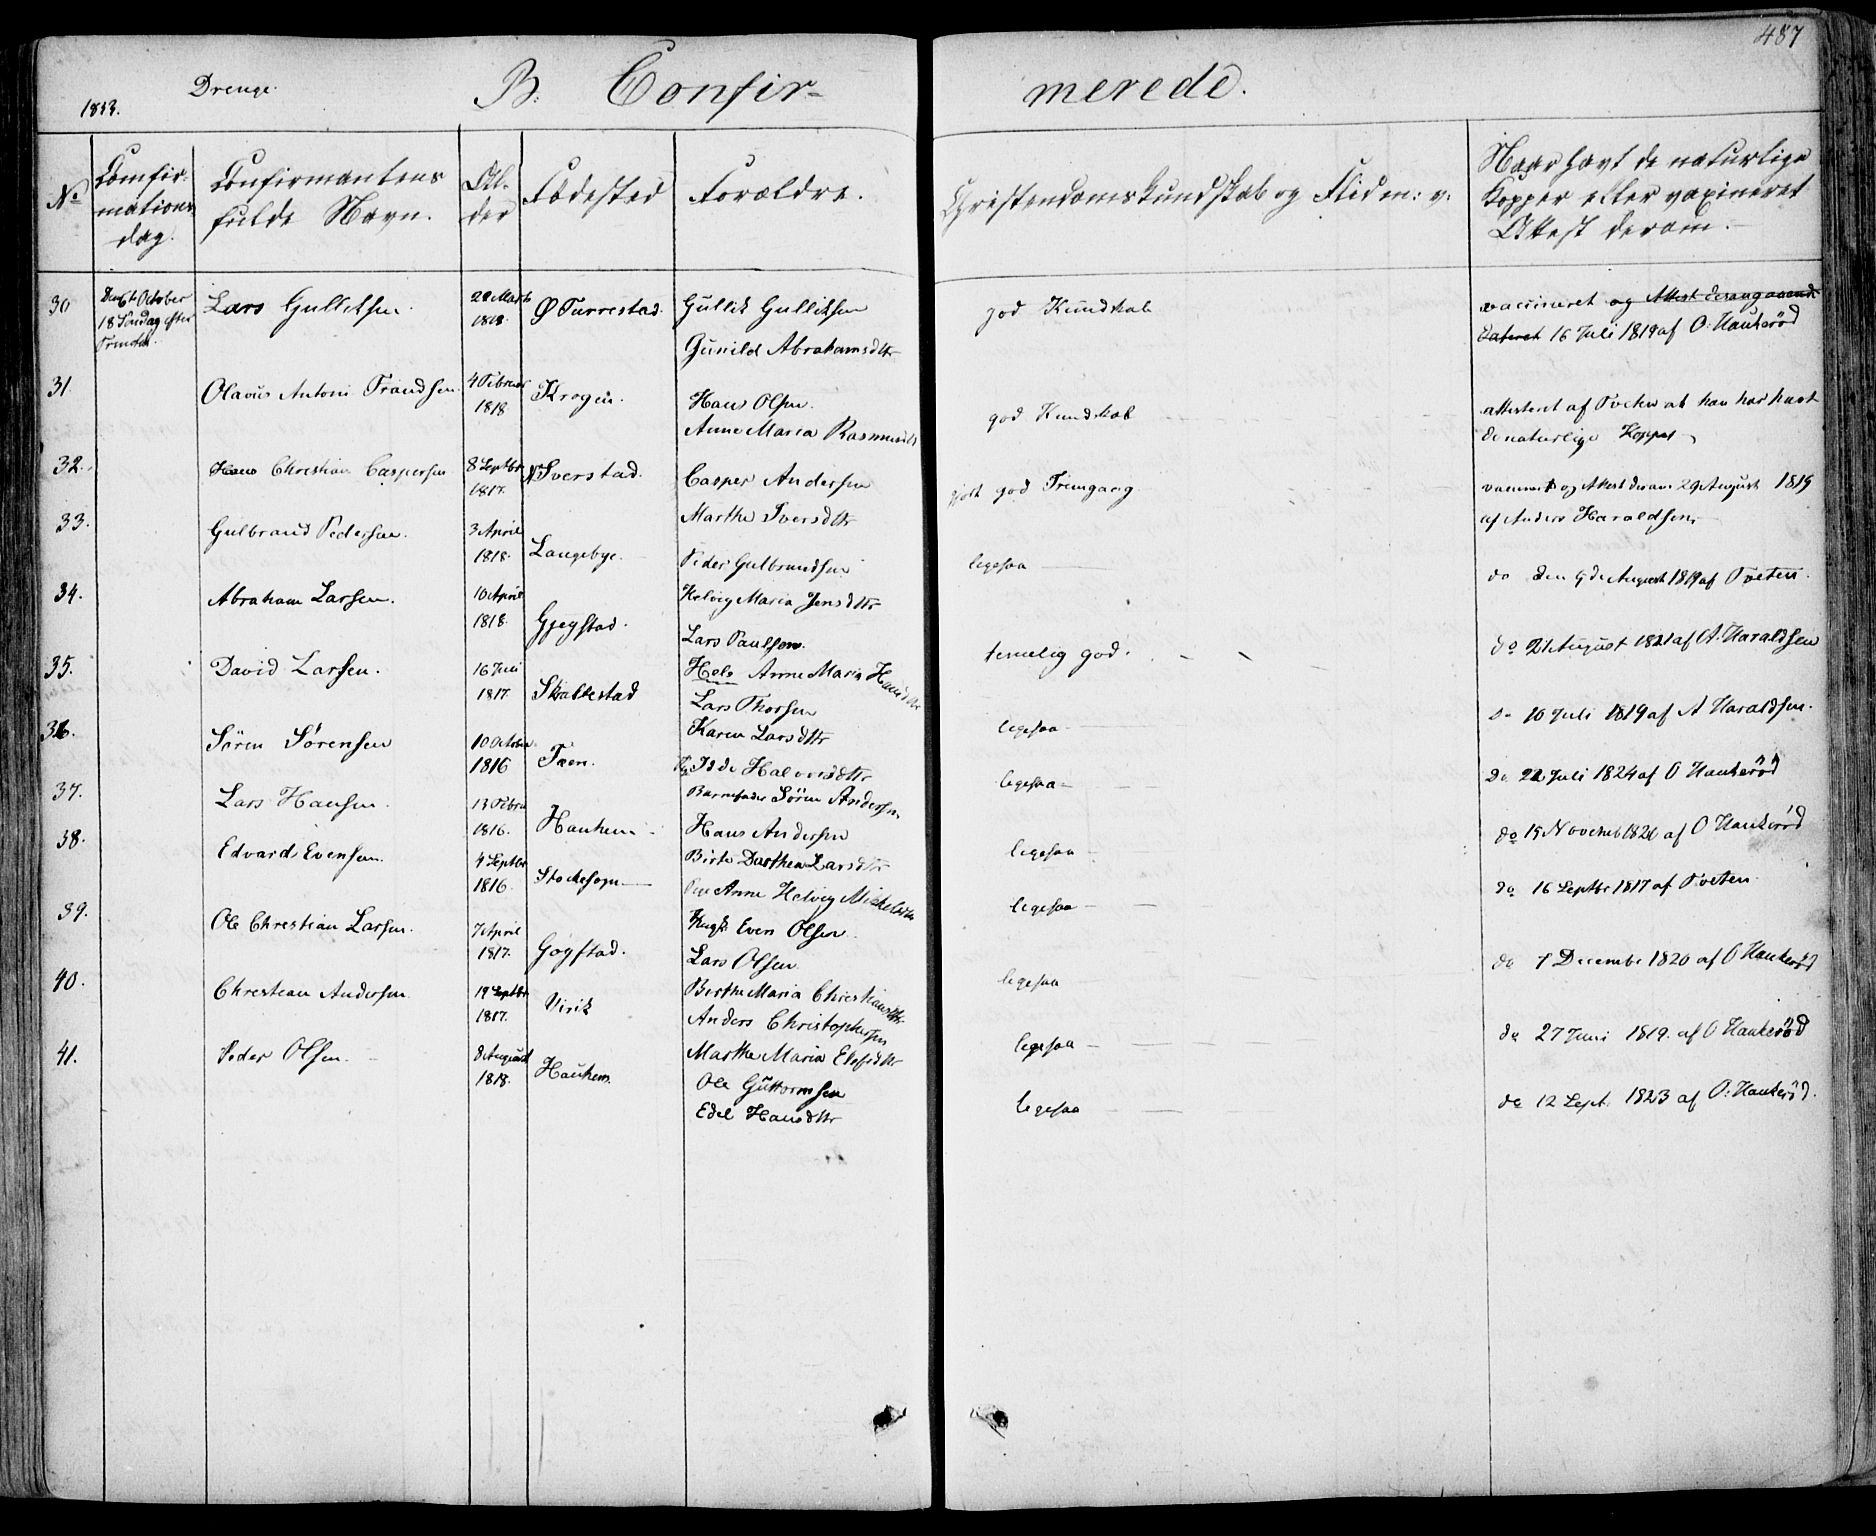 487
1833.
Drenge.
B. Confir-
merede.
No
Comfir-
mations
dag.
Confirmantens
fulde Navn.
Al-
der
Fødested
Forældre.
Christendomskundskab og Flid m: v:
Naar havt de naturlige
Kopper eller vaxineret
Attest derom.
30
Den 6te October
18 Søndag efter
Lars Gulliksen.
22 Marts
1818
Ø Furrestad.
Gullik Gulliksen
Gunild Abrahamsdtr
god Kundskab
vaccineret og Attest derangaaende
dateret 16 Juli 1819 af O: Haukerød
31
Olavus Antoni Frandsen.
4 Februar
1818
Krogen.
Hans Olsen.
Anne Maria Rasmusdtr
god Kundskab
attesteret af Tveten at han har havt
de naturlige Kopper
32.
Hans Christian Caspersen
8 Septbr
1817.
N Sverstad.
Casper Andersen
Marthe Iversdtr
god Fremgang
og Attest derom 29 August 1819
af Anders Haraldsen
33.
Gulbrand Pedersen.
3 April
1818.
Langebye.
Peder Gulbrandsen
Helvig Maria Jensdtr
ligesaa
do den 9de August 1819 af Tveten.
34.
Abraham Larsen.
10 April
1818.
Gjegstad.
Lars Paulsen.
Hele Anne Maria Hansdtr
temelig god.
do 21 August 1821 af A. Haraldsen
35.
David Larsen.
16 Juni
1817.
Skallestad
Lars Thorsen
Karen Larsdtr
ligesaa
do 16 Juli 1819 af A Haraldsen.
36.
Søren Sörensen
10 October
1816
Faen.
Isde Halvorsdtr
Barnefader Søren Andersen
ligesaa
do 22 Juli 1824 af O Haukerød
37.
Lars Hansen.
13 Febru
1816.
Haukem
Hans Andersen
Birte Dorthea Larsdtr
ligesaa
do 15 Novemb 1821 af O Haukerød
38.
Edvard Evensen.
4 Septbr
1816.
Stockesogn
Anne Helvig Mickelsdtr
Ungk. Even Olsen.
ligesaa
do 16 Septbr 1817 af Tveten
39.
Ole Christian Larsen.
7 April
1817.
Gogstad.
Lars Olsen
Berthe Maria Christiansdtr
ligesaa
do 7 Decembr 1820 af O Haukerød
40.
Christian Andersen
19 Septbr
1817.
Virik
Anders Christophersen
Marthe Maria Elefsdtr
ligesaa
do 27 Juni 1819. af O Haukerød
41.
Peder Olsen.
8 August
1818.
Haukem.
Ole Guttormsen
Edel Hansdtr
ligesaa
do 12 Sept. 1823 af O: Haukerød.